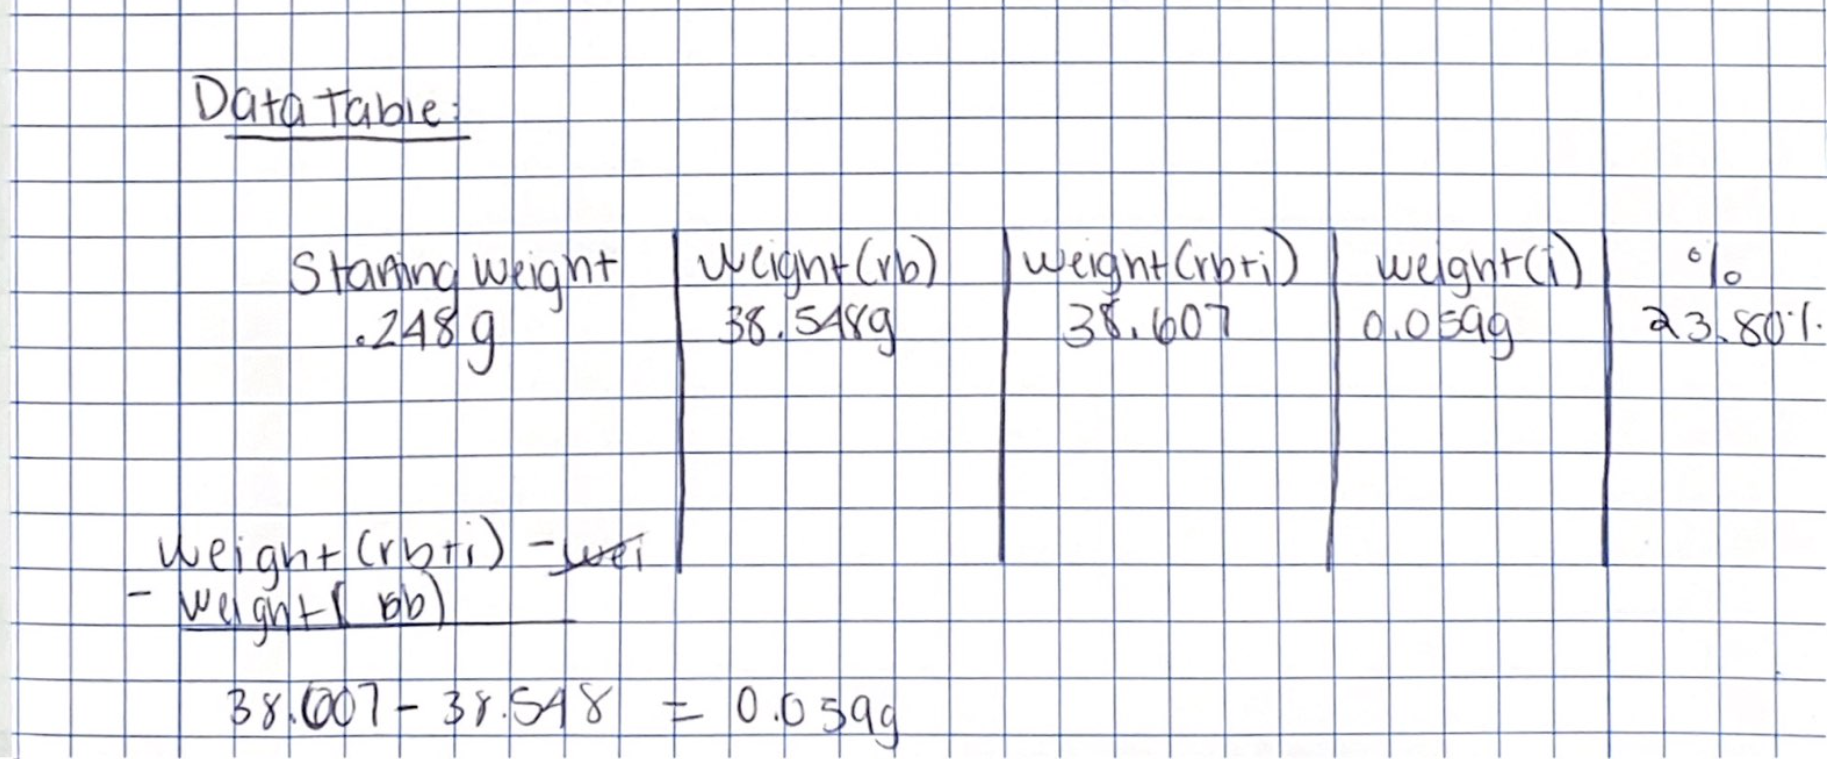 Data Table:
Starting weight weight(rb) weight(rb+i) weight(i) %
.248g 38.548g 38.607 0.059g 23.80%
weight(rb+i) - wei
- weight( bb)
38.607 - 38.548 = 0.059g